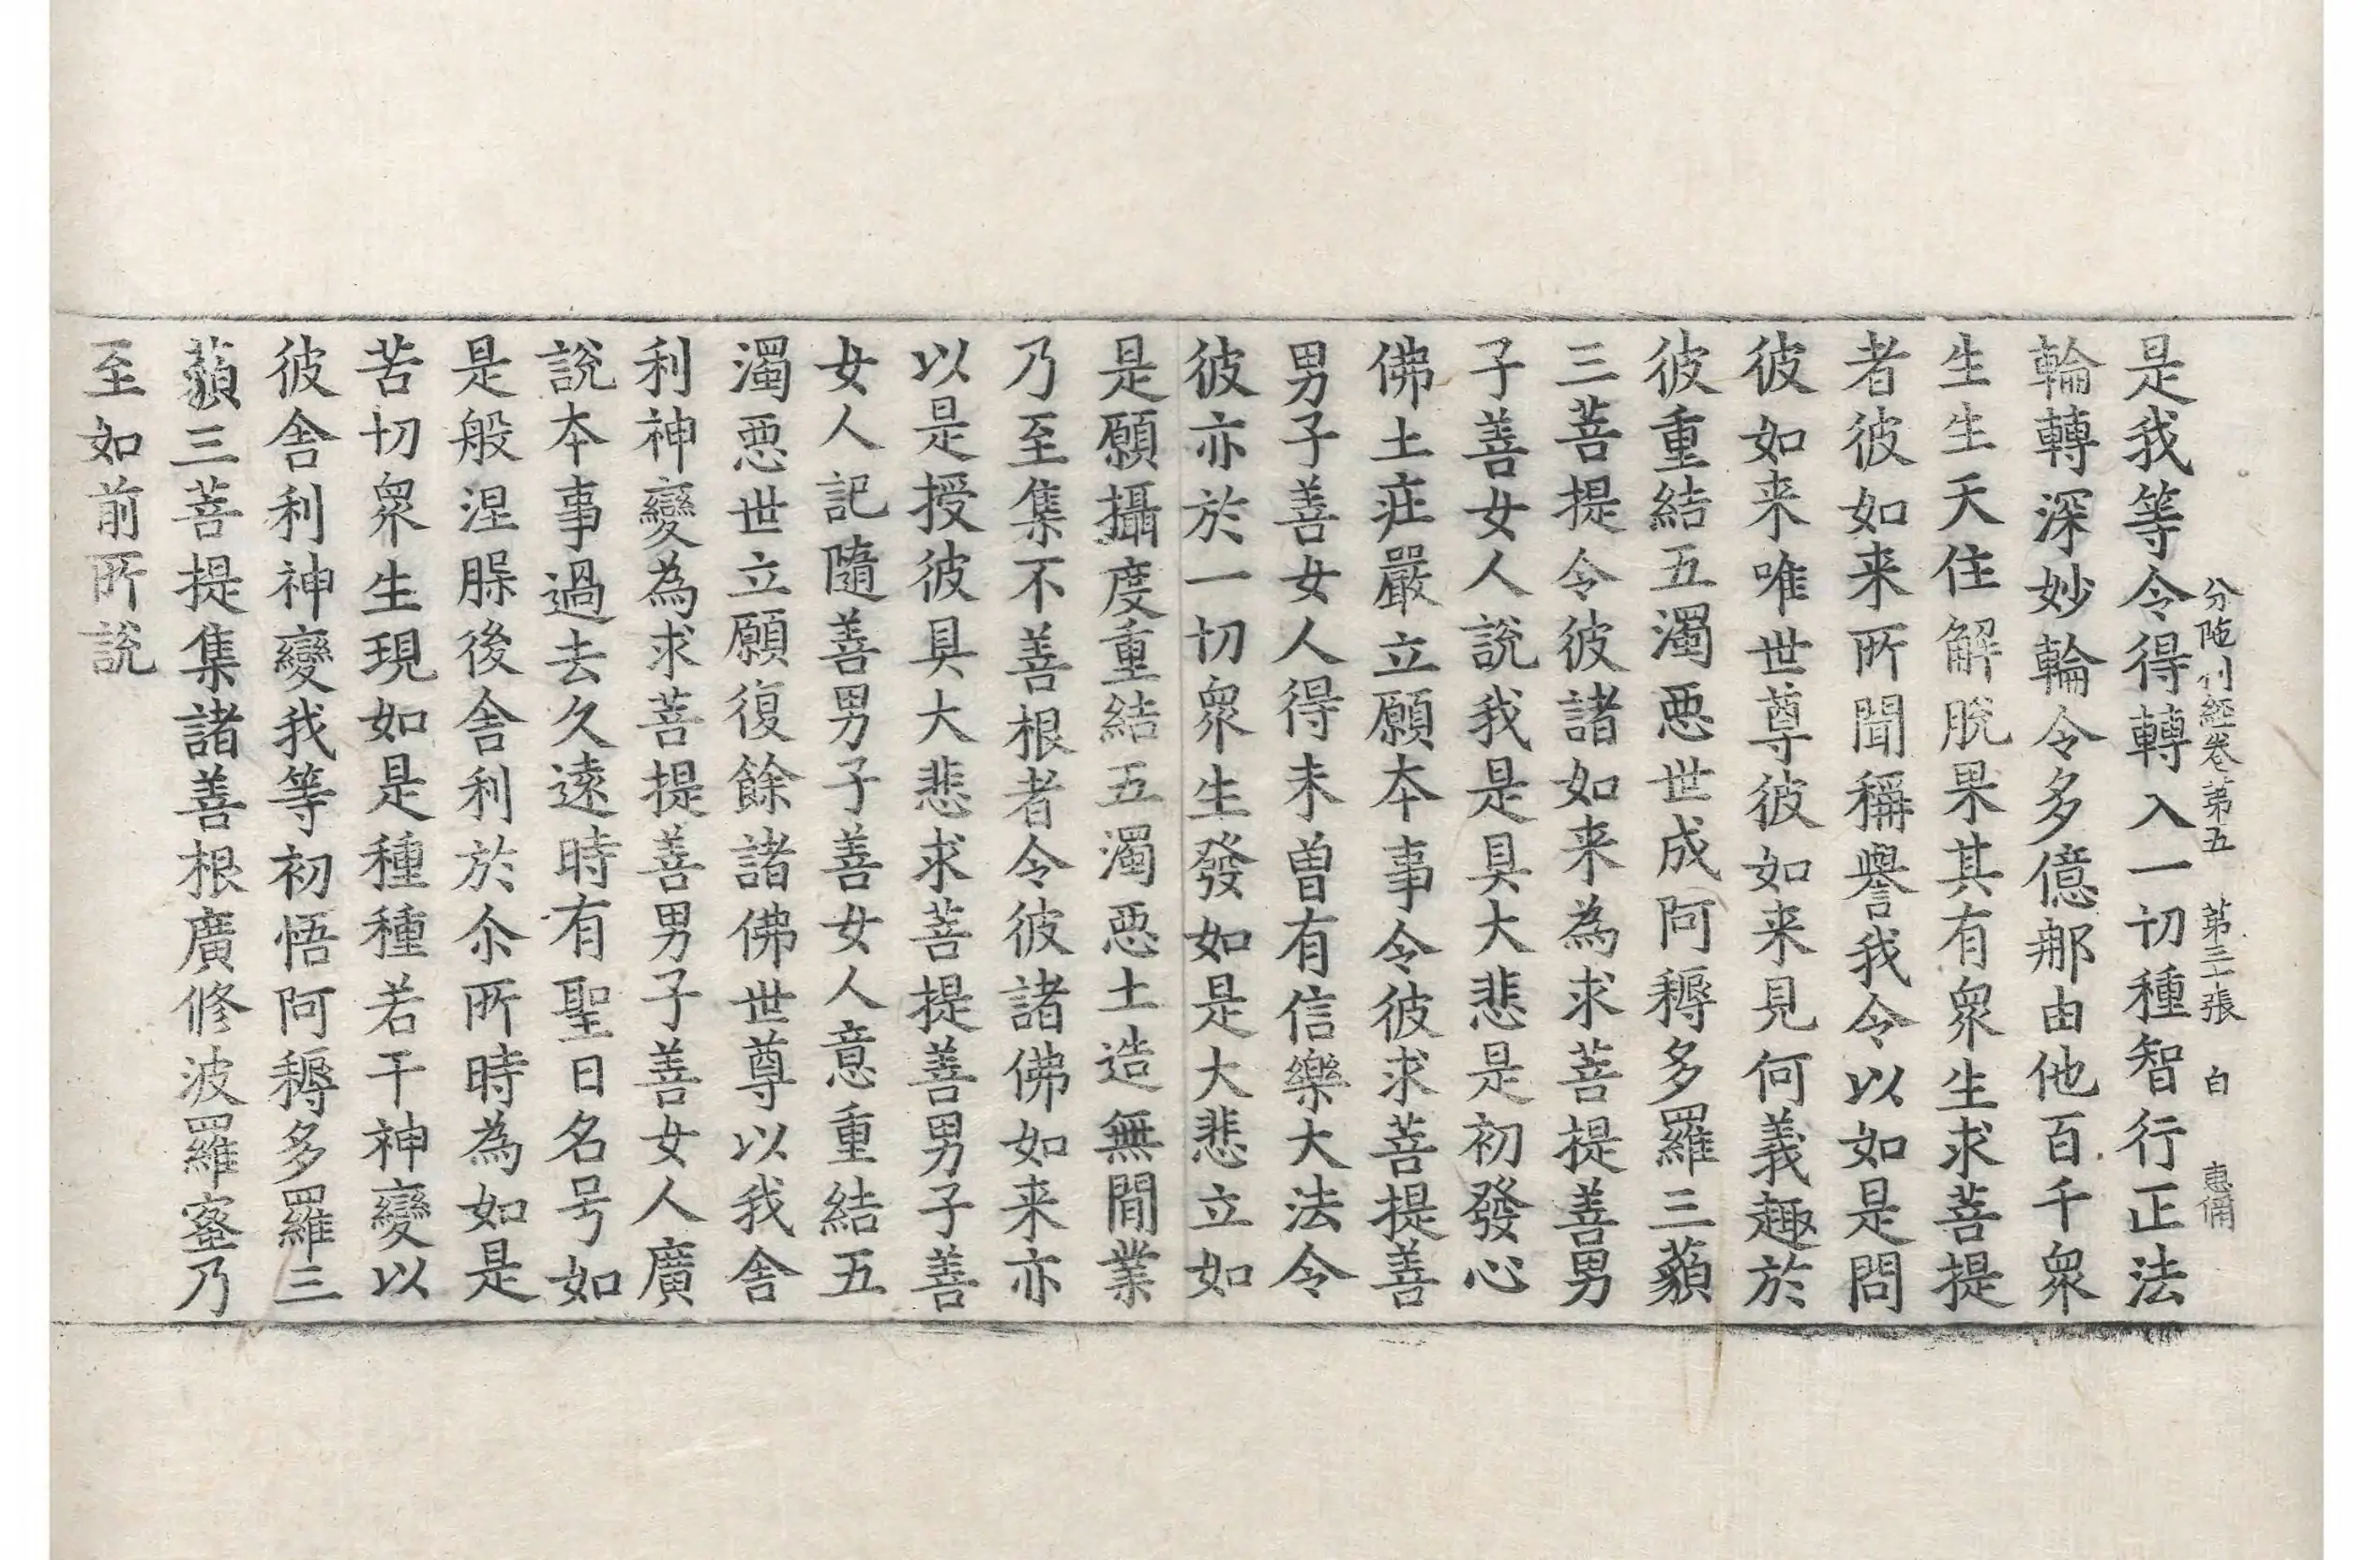 分陁利經卷第五　第三十張　白　惠備
是我等令得轉入一切種智行正法
輪轉深妙輪令多億那由他百千衆
生生天住解脫果其有衆生求菩提
者彼如来所聞稱譽我令以如是問
彼如来唯世尊彼如来見何義趣於
彼重結五濁悪世成阿耨多羅三藐
三菩提令彼諸如来為求菩提善男
子善女人說我是具大悲是初發心
佛土㽵嚴立願本事令彼求菩提善
男子善女人得未曾有信樂大法令
彼亦於一切衆生發如是大悲立如
是願攝度重結五濁悪土造無閒業
乃至集不善根者令彼諸佛如来亦
以是授彼具大悲求菩提善男子善
女人記隨善男子善女人意重結五
濁悪世立願復餘諸佛世尊以我舍
利神變為求菩提善男子善女人廣
說本事過去久遠時有聖日名号如
是般涅槃後舍利於尒所時為如是
苦切衆生現如是種種若干神變以
彼舍利神變我等初悟阿耨多羅三
藐三菩提集諸善根廣修波羅蜜乃
至如前所說